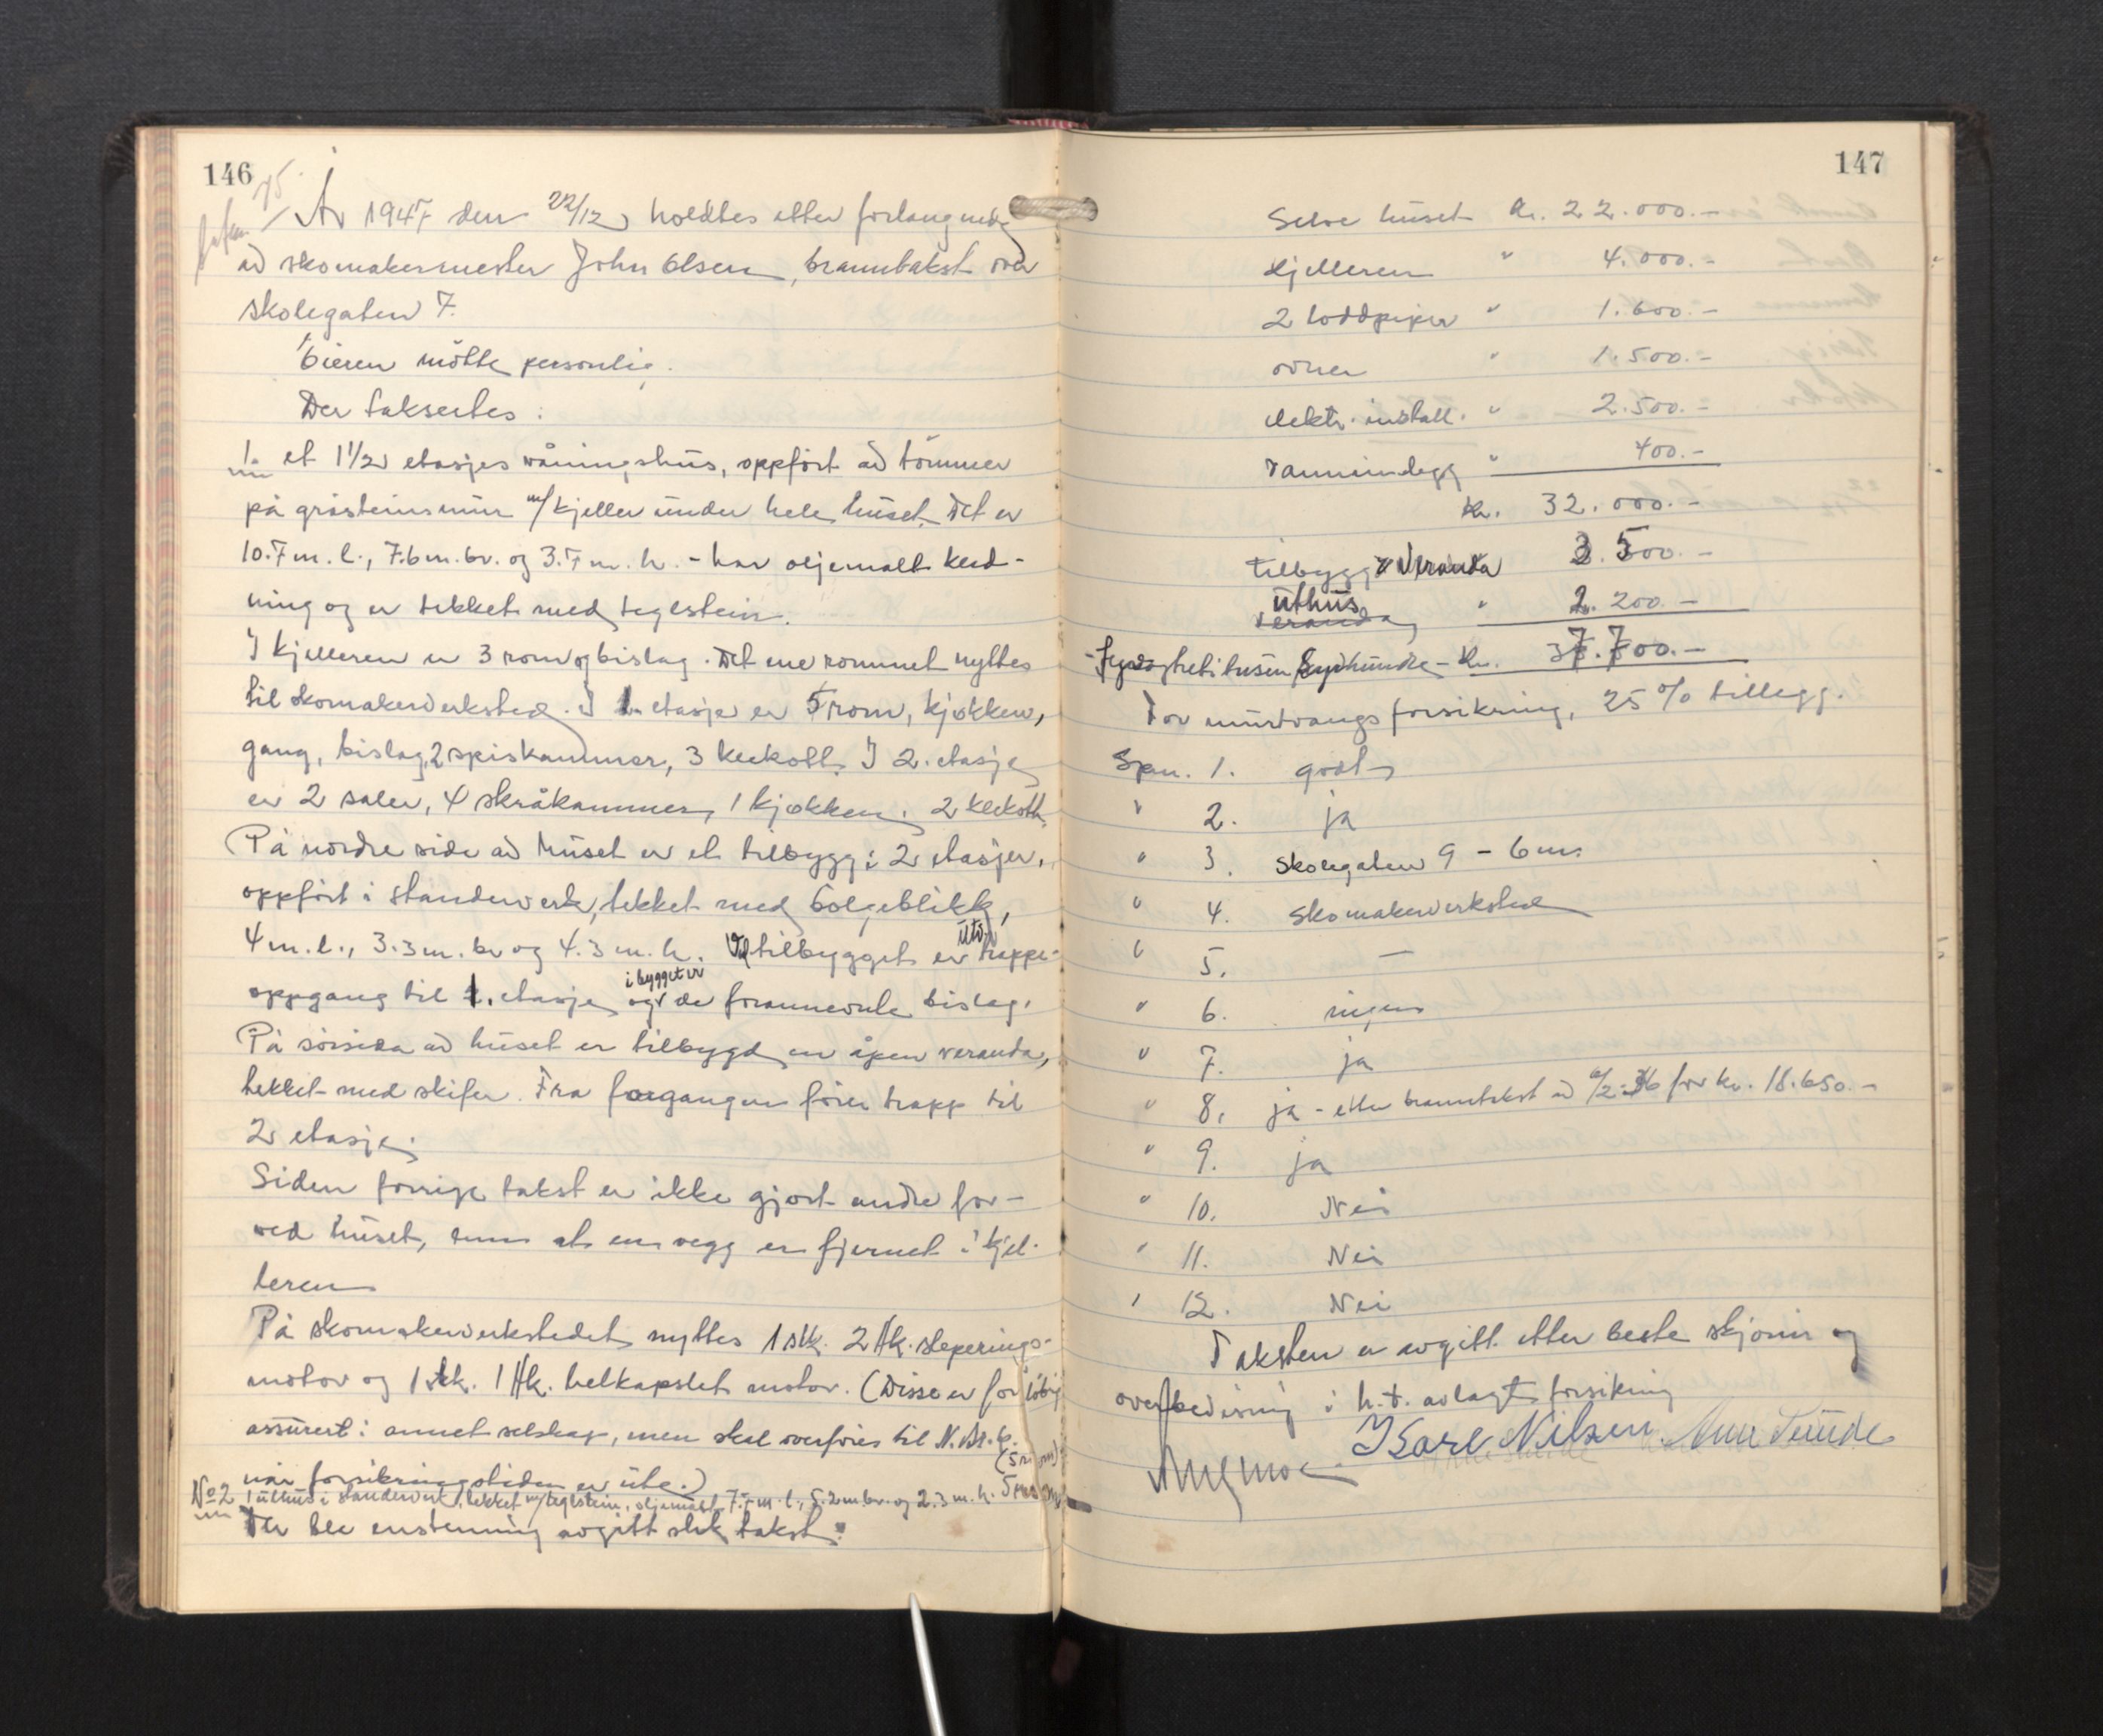 146
75.
År 1947 den 22/12 holdtes etter forlangende
av skomakermester John Olsen, branntakst over
Skolegaten 7.
Eieren møtte personlig.
Der taksertes:
1. et 1 1/2 etasjes våningshus, oppført av tømmer
på gråsteinsmur m/kjeller under hele huset. Det er
10.7 m. l., 7.6 m. br. og 3.7 m. h. - har oljemalt kled-
ning og er tekket med teglstein.
I kjelleren er 3 rom og bislag. Det ene rommet nyttes
til skomakerverksted. I 1. etasje er 5 rom, kjøkken,
gang, bislag, 2 spiskammer, 3 klekott. I 2. etasje
er 2 saler, 4 skråkammer, 1 kjøkken, 2 klekott.
På nordre side av huset er et tilbygg i 2 etasjer,
oppført i standerverk, tekket med bølgeblikk,
4 m. l., 3.3 m. br og 4.3 m. h. Ved tilbygget er utv. trappe-
oppgang til 1. etasje og i bygget er de forannevnte bislag.
På sørsida av huset er tilbygd en åpen veranda,
tekket med skifer. Fra forgangen fører trapp til
2 etasje.
Siden forrige takst er ikke gjort andre for-
ved huset, enn at en vegg er fjernet i kjel-
leren
På skomakerverkstedet nyttes 1 stk. 2 Hk. sleperings-
motor og 1 stk. 1 Hk. helkapslet motor. (Disse er foreløbig
assurert i annet selskap, men skal overføres til N. Br. k.
når forsikringstiden er ute.)
No 2 1 uthus i standerverk, tekket m/teglstein, oljemalt 7.7 m. l., 5.2 m br. og 2.3 m. h.
Der ble enstemmig avgitt slik takst:
147
Selve huset kr. 22.000.-
Kjelleren " 4.000.-
2 loddpiper " 1.600.-
ovner " 1.500.-
elektr. install. " 2.500.-
vanninnlegg " 400.-
Kr. 32.000.-
tilbygg + veranda 3.500.-
uthus veranda " 2.200.-
- syvogtretitusen syvhundre - Kr. 37.700.-
For murtvangsforsikring, 25 % tillegg.
Spm. 1. godt
" 2. ja
" 3. Skolegaten 9 - 6 m.
" 4. Skomakerverksted
" 5. —
" 6. ingen
" 7. ja
" 8. ja - etter branntakst av 6/2-36 for kr. 18.650.-
" 9. ja
" 10. Nei
" 11. Nei
" 12. Nei
Taksten er avgitt etter beste skjønn og
overbevisning i h.t. avlagt forsikring
Karl Nilsen.